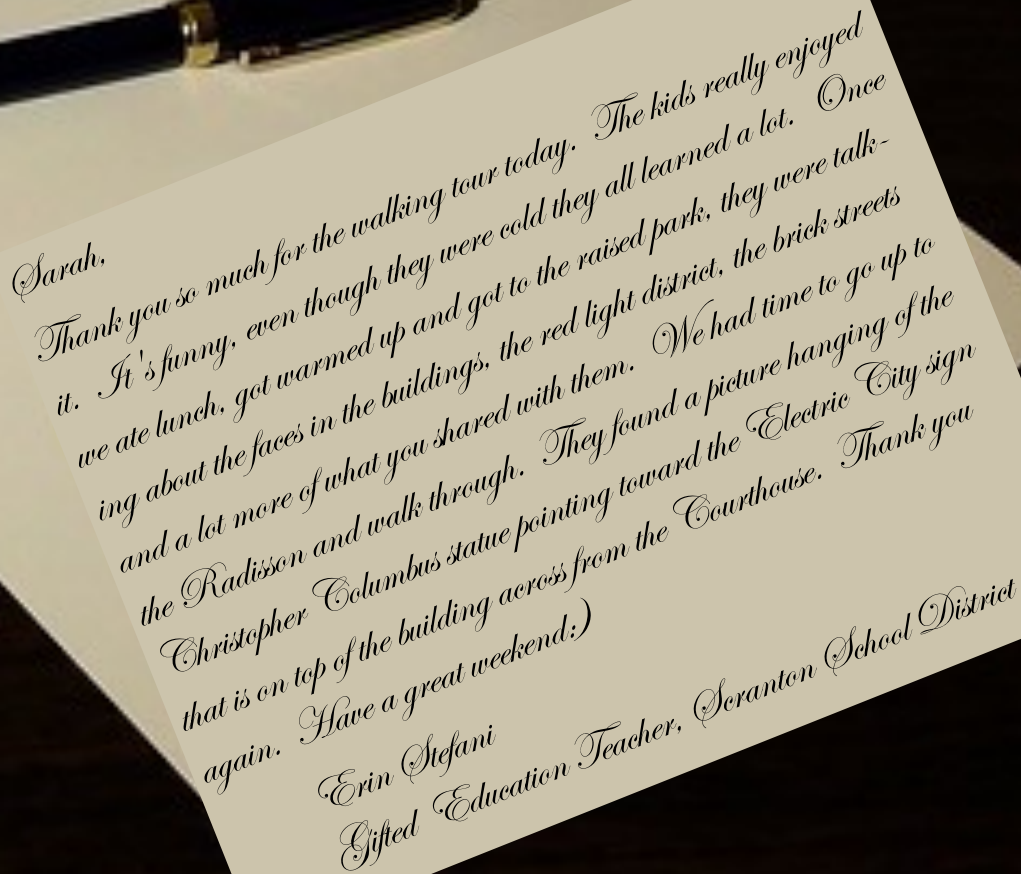 Sarah,
Thank you so much for the walking tour today. The kids really enjoyed
it. It's funny, even though they were cold they all learned a lot. Once
we ate lunch, got warmed up and got to the raised park, they were talk-
ing about the faces in the buildings, the red light district, the brick streets
and a lot more of what you shared with them. We had time to go up to
the Radisson and walk through. They found a picture hanging of the
Christopher Columbus statue pointing toward the Electric City sign
that is on top of the building across from the Courthouse. Thank you
again. Have a great weekend:)
Erin Stefani
Gifted Education Teacher, Scranton School District